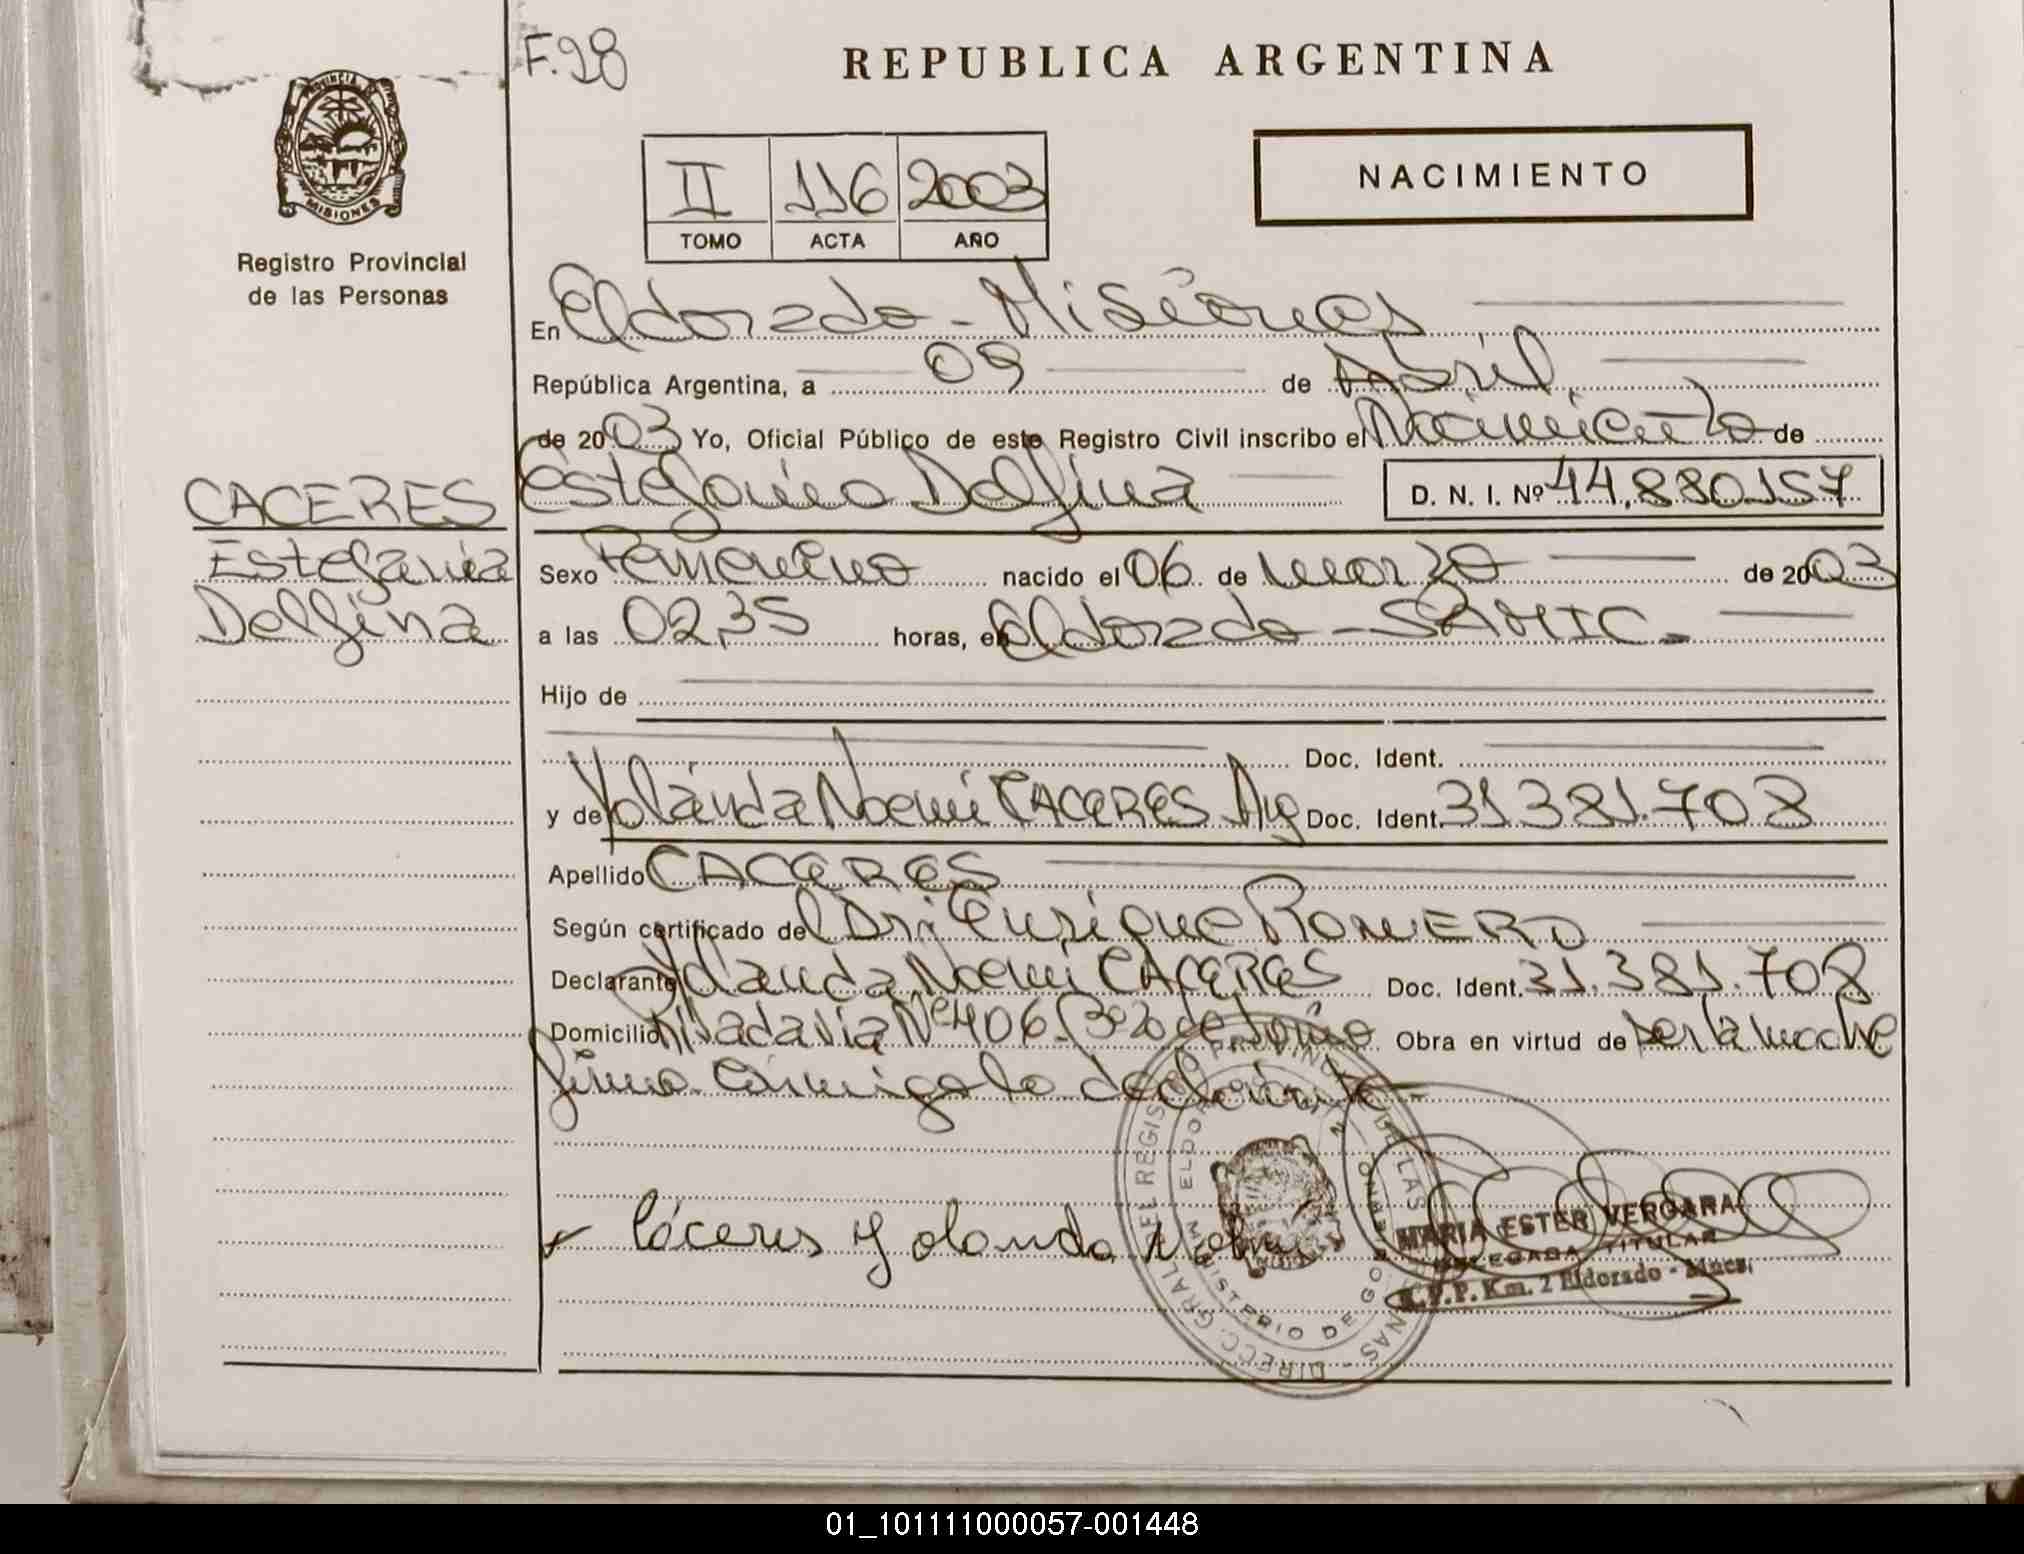 F.28
REPUBLICA ARGENTINA
MISIONES
Registro Provincial
de las Personas
II 116 2003
TOMO ACTA AÑO
NACIMIENTO
En Eldorado - Misiones
República Argentina, a 09 de Abril
de 2003 Yo, Oficial Público de este Registro Civil inscribo el Nacimiento de
Estefania Delfina D. N. I. Nº 44.880157
CACERES
Estefania
Delfina
Sexo Femenino nacido el 06 de marzo de 2003
a las 02,35 horas, en Eldorado - SAMIC.-
Hijo de
Doc. Ident.
y de Yolanda Noemí CACERES Arg Doc. Ident. 31381.708
Apellido CACERES
Según certificado del Dr. Enrique ROMERO
Declarante Yolanda Noemi CACERES Doc. Ident. 31.381.708
Domicilio Rivadavia Nº 406 Obra en virtud de ser la madre
firma conmigo la declarante-
Cáceres Yolanda Noemi
MARIA ESTER VERGARA
DELEGADA TITULAR
R.P.P. Km. 2 Eldorado - Mnes.
DIRECC. GRAL. DEL REGISTRO PROVINCIAL DE LAS PERSONAS
MINISTERIO DE GOBIERNO
01_101111000057-001448